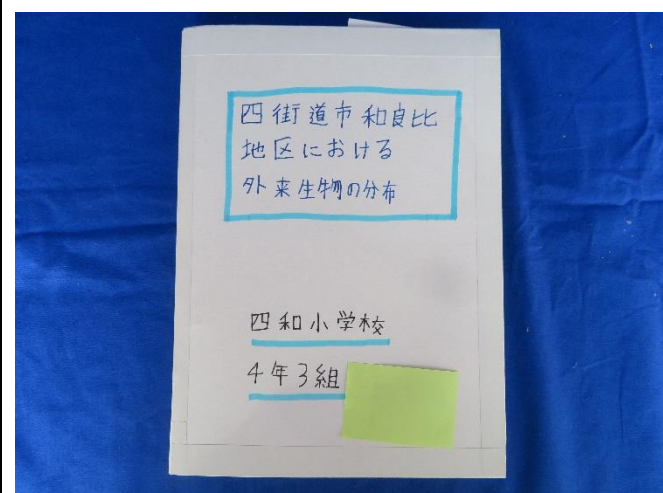 四街道市和良比
地区における
外来生物の分布
四和小学校
4年3組